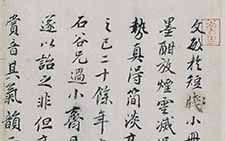 文敏於短牋小冊
墨酣放煙雲滅
勢真得簡淡
之已二十餘年
石谷兄過小齋
遂以詒之非但
賞音具氣韻